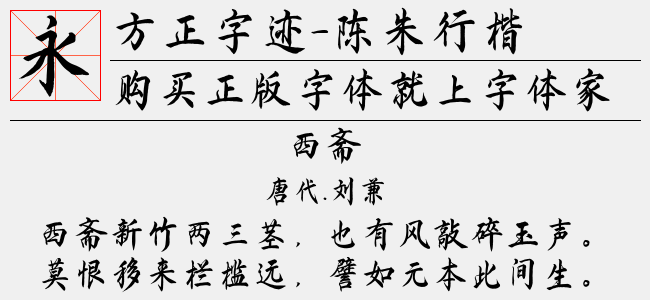 永
方正字迹-陈朱行楷
购买正版字体就上字体家
西斋
唐代.刘兼
西斋新竹两三茎，也有风敲碎玉声。
莫恨移来栏槛远，譬如元本此间生。